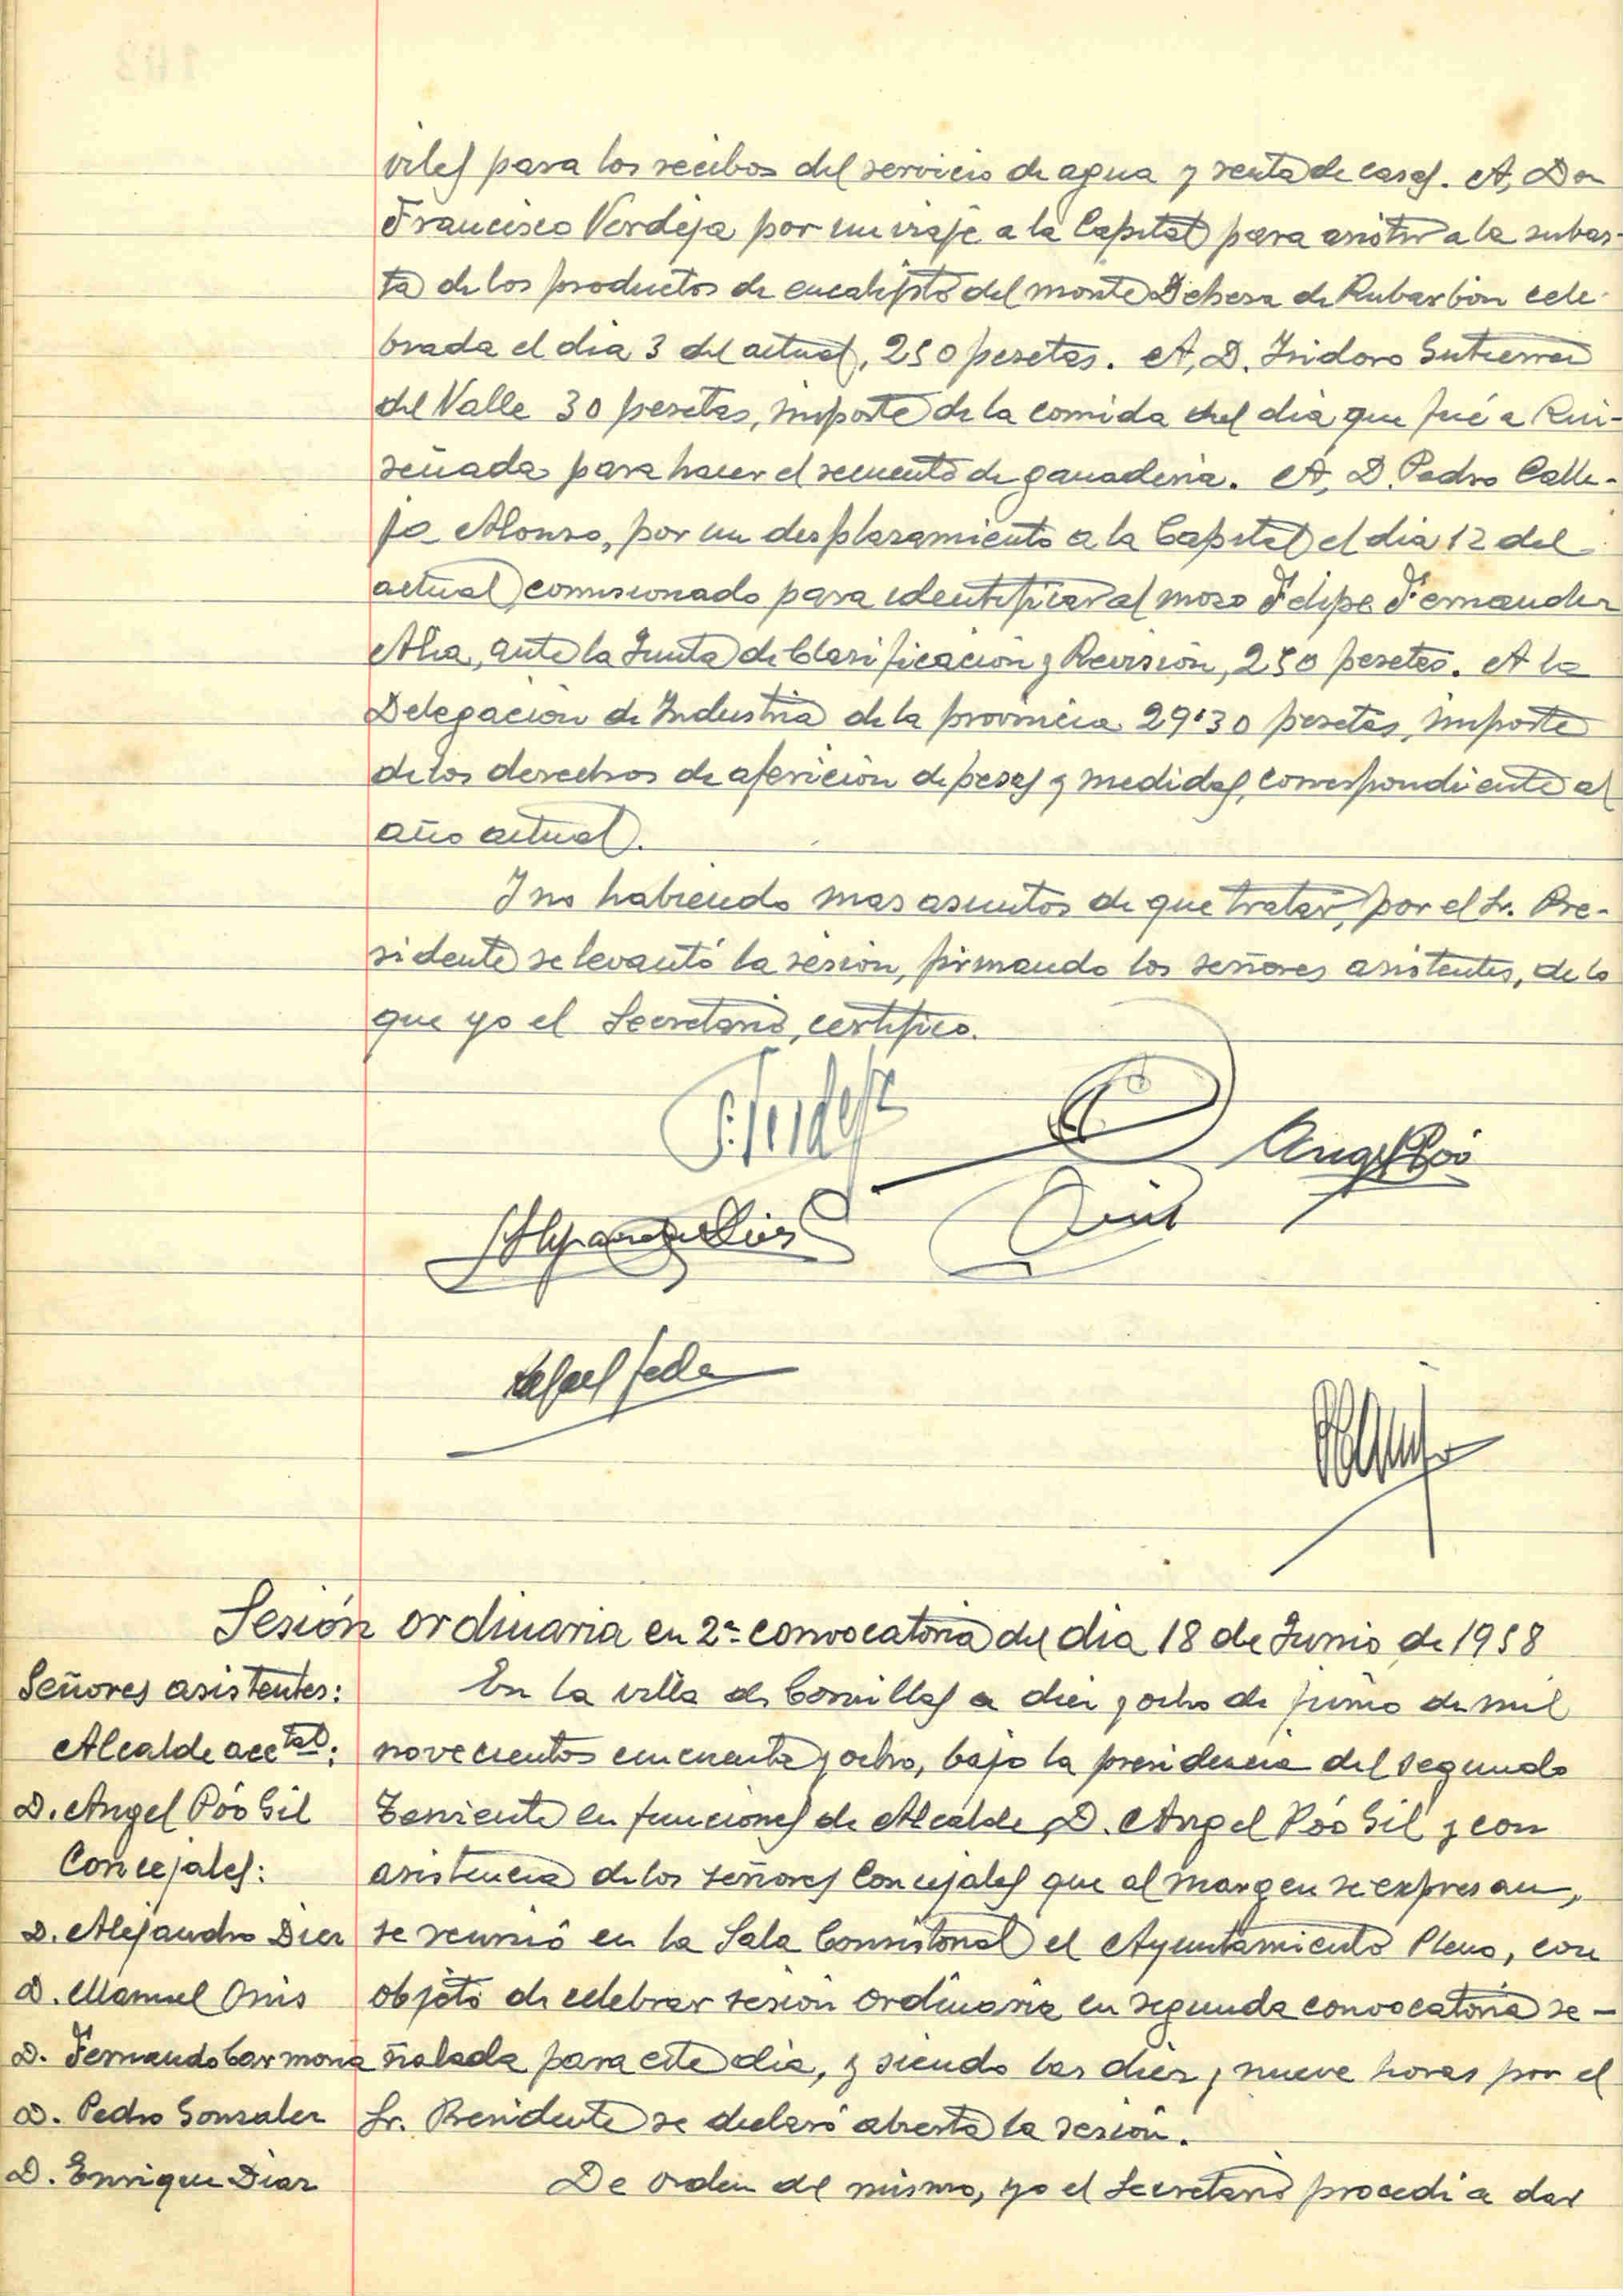 viles para los recibos del servicio de agua y renta de casas. A, Don
Francisco Verdeja por un viaje a la Capital para asistir a la subas-
ta de los productos de eucalipto del monte Dehesa de Rubarbón cele-
brada el dia 3 del actual, 250 pesetas. A, D. Isidoro Gutierrez
del Valle 30 pesetas, importe de la comida del dia que fué a Rui-
señada para hacer el recuento de ganaderia. A, D. Pedro Calle-
ja Alonso, por un desplazamiento a la Capital el dia 12 del
actual, comisionado para identificar al mozo Felipe Fernandez
Alia, ante la Junta de Clasificación y Revisión, 250 pesetas. A la
Delegación de Industria de la provincia 29'30 pesetas, importe
de los derechos de aferición de pesas y medidas, correspondiente al
año actual.
Y no habiendo mas asuntos de que tratar, por el Sr. Pre-
sidente se levantó la sesión, firmando los señores asistentes, de lo
que yo el Secretario, certifico.
F. Verdeja
Angel Póo
Alejandro Diez
Rafael
Sesión ordinaria en 2ª convocatoria del dia 18 de Junio de 1958
Señores asistentes:
Alcalde acctal:
D. Angel Póo Gil
Concejales:
D. Alejandro Diez
D. Manuel Onis
D. Fernando Carmona
D. Pedro Gonzalez
D. Enrique Diaz
En la villa de Comillas a diez y ocho de junio de mil
novecientos cincuenta y ocho, bajo la presidencia del segundo
Teniente en funciones de Alcalde, D. Angel Póo Gil y con
asistencia de los señores Concejales que al margen se expresan,
se reunió en la Sala Consistorial el Ayuntamiento Pleno, con
objeto de celebrar sesión ordinaria en segunda convocatoria se-
ñalada para este dia, y siendo las diez y nueve horas por el
Sr. Presidente se declaró abierta la sesión.
De orden del mismo, yo el Secretario procedi a dar